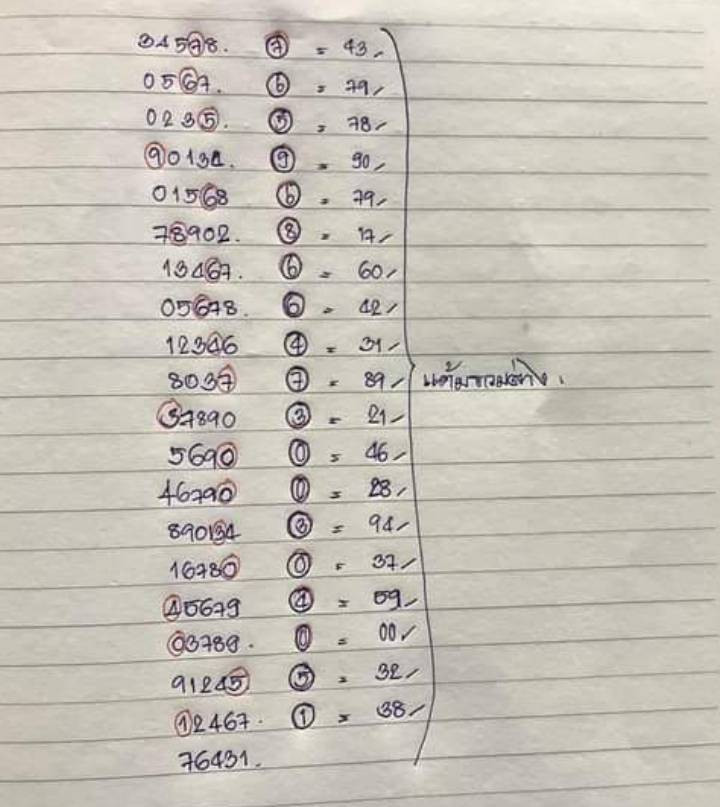 34578. 7 = 43
0567. 6 = 79
0235. 5 = 78
90134. 9 = 90
01568 6 = 79
78902. 8 = 17
13467. 6 = 60
05678. 6 = 42
12346 4 = 31
8037 7 = 89
แต้มรวมล่าง.
37890 3 = 21
5690 0 = 46
46790 0 = 28
890134 3 = 94
16780 0 = 37
45679 4 = 59
03789. 0 = 00
91245 5 = 32
12467. 1 = 38
76431.